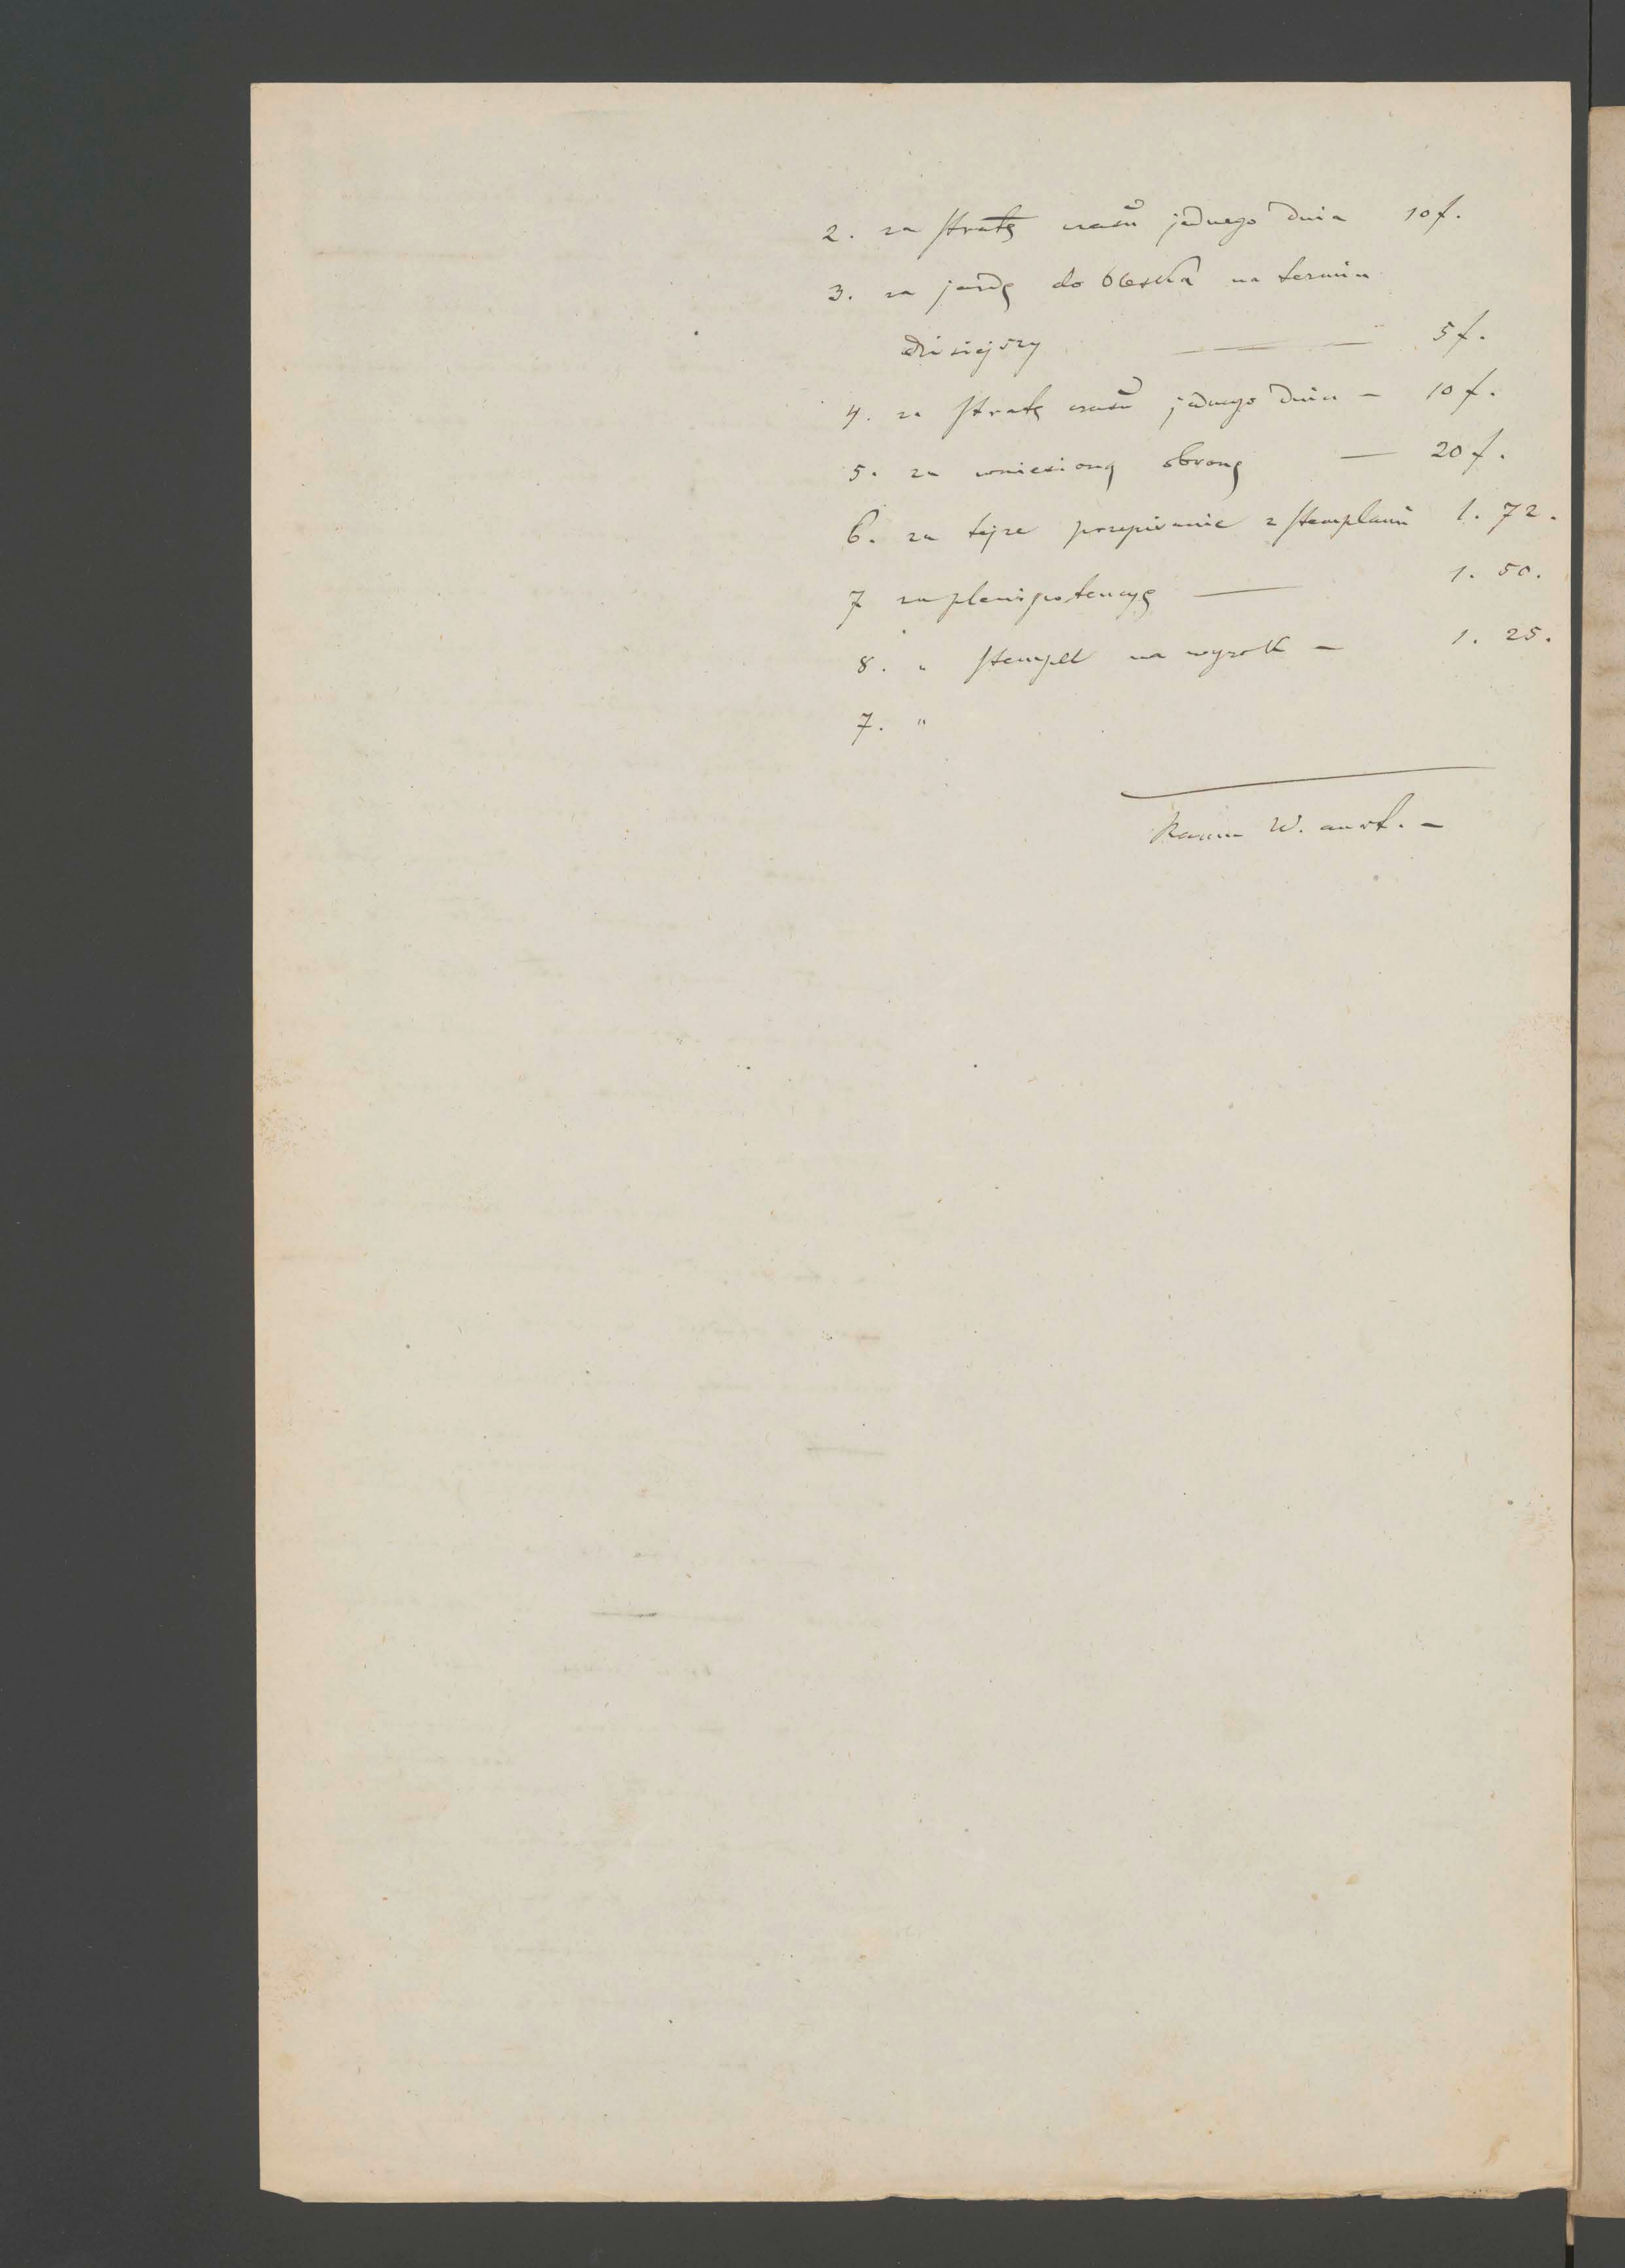 2. za stratę czasu jednego dnia 10 f.
3. za jazdę do Oleska na termin
dzisiejszy — — 5 f.
4. za stratę czasu jednego dnia – 10 f.
5. za wniesioną obronę — 20 f.
6. za tejże przepisanie z stemplami 1. 72.
7 za plenipotencyę — 1. 50.
8. " stempel na wyrok – 1. 25.
7. "
Razem W. aust. –